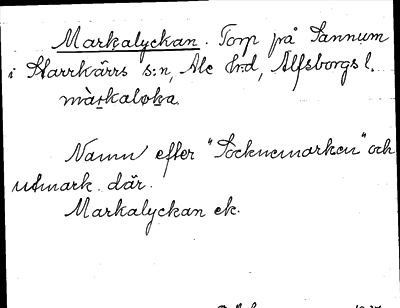 Markalyckan. Torp på Sannum
i Starrkärrs s:n, Ale hd, Älfsborgs l.
màṛkaloka.
Namn efter "Socknemarken" och
utmark där.
Markalyckan ek.